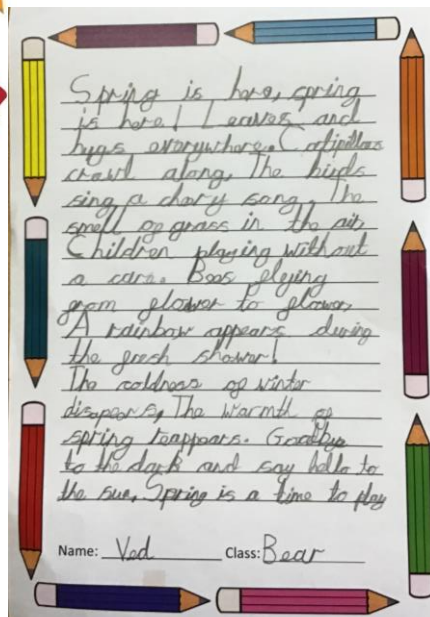 Spring is here, spring
is here! Leaves and
bugs everywhere. Catipillars
crawl along, The birds
sing a chery song, The
smell of grass in the air,
Children playing without
a care. Bees flying
from flower to flower,
A rainbow appears during
the fresh shower!
The coldness of winter
disapears, The warmth of
spring reappears. Goodbye
to the dark and say hello to
the sun, Spring is a time to play
Name: Ved Class: Bear